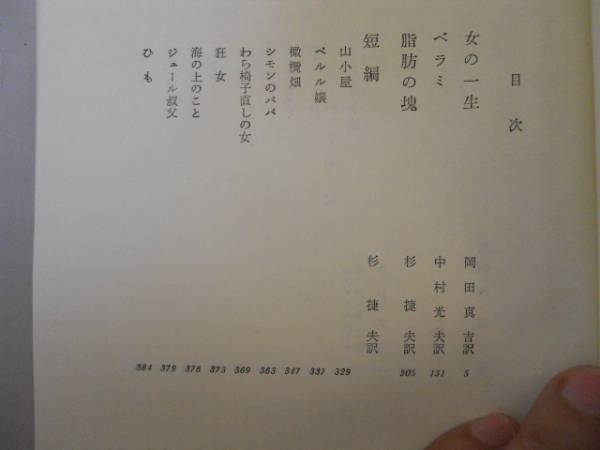 目次
女の一生 岡田真吉訳 5
ベラミ 中村光夫訳 131
脂肪の塊 杉捷夫訳 305
短編 杉捷夫訳
山小屋 329
ペルル嬢 337
橄欖畑 347
シモンのパパ 363
わら椅子直しの女 369
狂女 373
海の上のこと 376
ジュール叔父 379
ひも 384